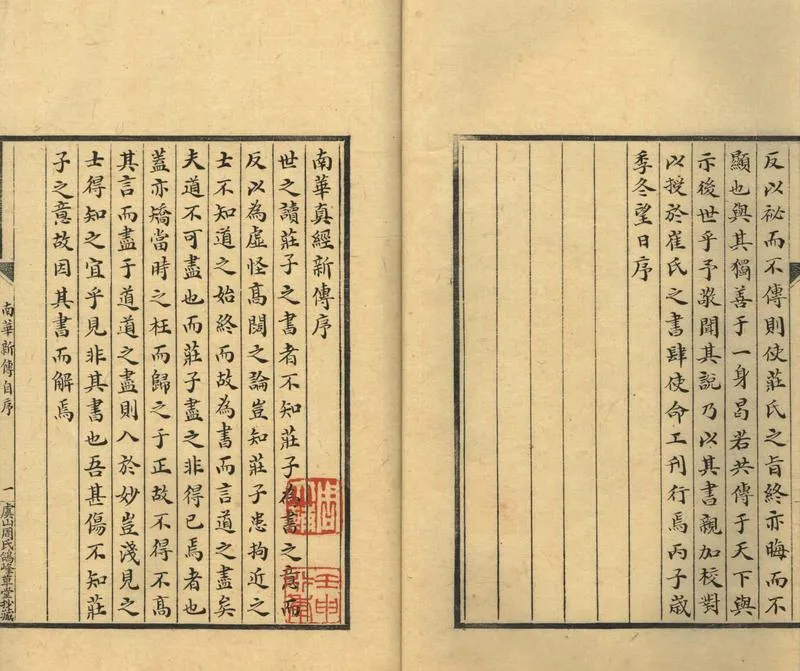 反以祕而不傳則使莊氏之旨終亦晦而不
顯也與其獨善于一身曷若共傳于天下與
示後世乎予敬聞其說乃以其書親加校對
以授於崔氏之書肆使命工刊行焉丙子歲
季冬望日序
南華真經新傳序
世之讀莊子之書者不知莊子為書之意而
反以為虛怪高闊之論豈知莊子患拘近之
士不知道之始終而故為書而言道之盡矣
夫道不可盡也而莊子盡之非得已焉者也
蓋亦矯當時之枉而歸之于正故不得不高
其言而盡于道道之盡則入於妙豈淺見之
士得知之宜乎見非其書也吾甚傷不知莊
子之意故因其書而解焉
南華新傳自序
一
虞山周氏鴿峰草堂抄藏